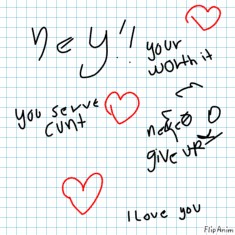 hey!!
your
worth it
you serve
cunt
give up
I love you
FlipAnim